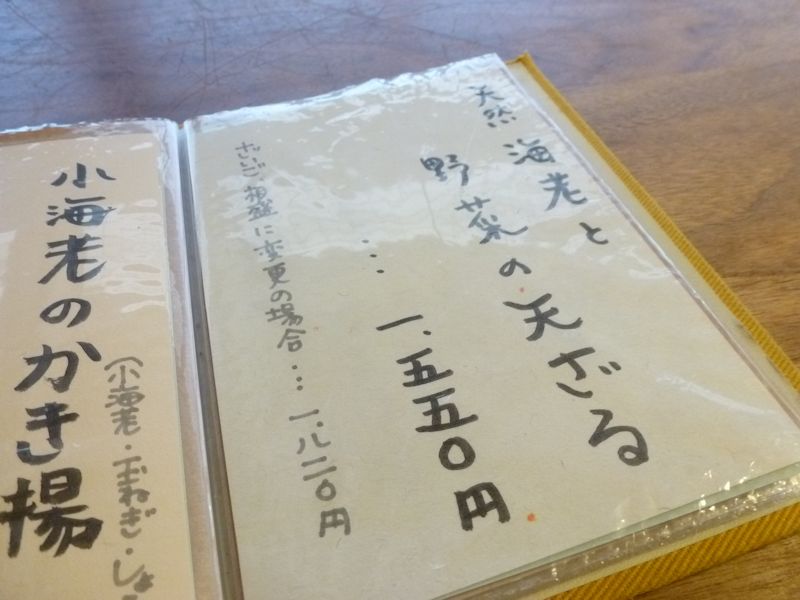 天然海老と
野菜の天ざる
… 一、五五〇円
相盛に変更の場合…一、八二〇円
小海老のかき揚
(小海老・玉ねぎ・しょ